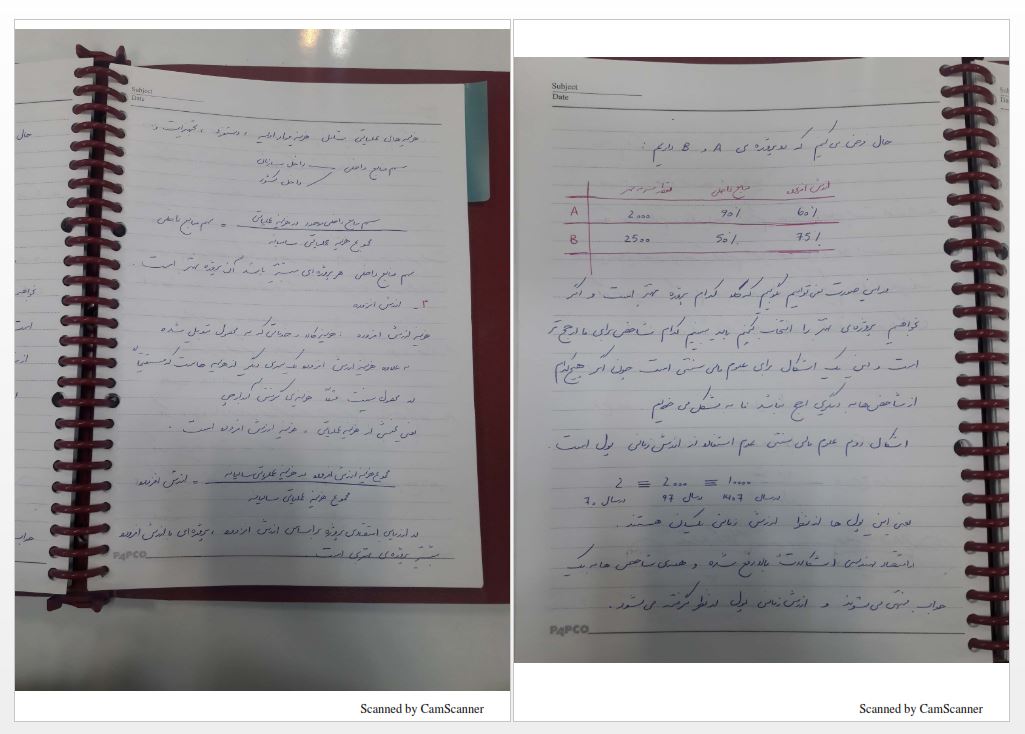 Subject
Date
هزینه‌های عملیاتی شامل هزینه مواد اولیه ، دستمزد ، تعمیرات و
سهم منابع داخلی داخل سازمان
داخل کشور
سهم منابع داخلی = سهم منابع داخلی موجود در هزینه عملیاتی
مجموع هزینه عملیاتی سالیانه
سهم منابع داخلی هر پروژه‌ای بیشتر باشد آن پروژه بهتر است .
۳_ ارزش افزوده
هزینه ارزش افزوده : هزینه خدماتی که به محصول تبدیل شده
به علاوه هزینه ارزش افزوده یک سری دیگر از هزینه هاست که مستقیماً
در محصول نیست
یعنی بخشی از هزینه عملیاتی ، هزینه ارزش افزوده است .
ارزش افزوده = مجموع هزینه ارزش افزوده در هزینه عملیاتی سالیانه
مجموع هزینه عملیاتی سالیانه
در ارزیابی اقتصادی پروژه براساس ارزش افزوده ، پروژه‌ای با ارزش افزوده
بیشتر پروژه‌ی بهتری است .
PAPCO
Scanned by CamScanner
Subject
Date
حال فرض می‌کنیم که دو پروژه‌ی A و B داریم :
نقطه سربه سر منابع داخلی ارزش افزوده
A 2000 90% 60%
B 2500 50% 75%
در این صورت نمی‌توانیم بگوییم که کدام پروژه بهتر است و اگر
بخواهیم پروژه‌ی بهتر را انتخاب کنیم باید ببینیم کدام شاخص برای ما ارجح تر
است و این یک اشکال برای علوم مالی سنتی است چون اگر هیچکدام
از شاخص‌ها به دیگری ارجح نباشد ما به مشکل می‌خوریم
اشکال دوم علوم مالی سنتی عدم استفاده از ارزش زمانی پول است .
2 ≡ 2000 ≡ 10000
در سال 70 در سال 97 در سال 1407
یعنی این پول ها از نظر ارزش زمانی یکسان هستند .
در اقتصاد مهندسی اشکالات بالا رفع شده و همه‌ی شاخص ها به یک
جواب منتهی می‌شوند و ارزش زمانی پول در نظر گرفته می‌شود .
PAPCO
Scanned by CamScanner